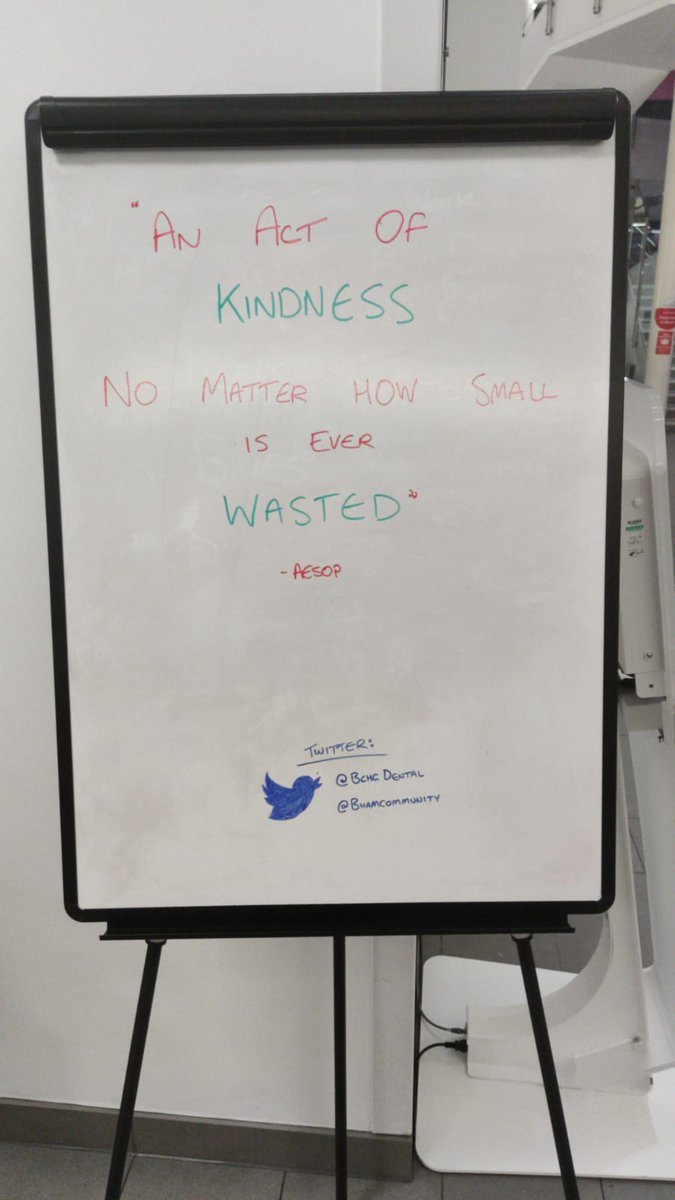 "AN ACT OF
KINDNESS
NO MATTER HOW SMALL
IS EVER
WASTED"
-AESOP
TWITTER:
@BCHC DENTAL
@BHAMCOMMUNITY